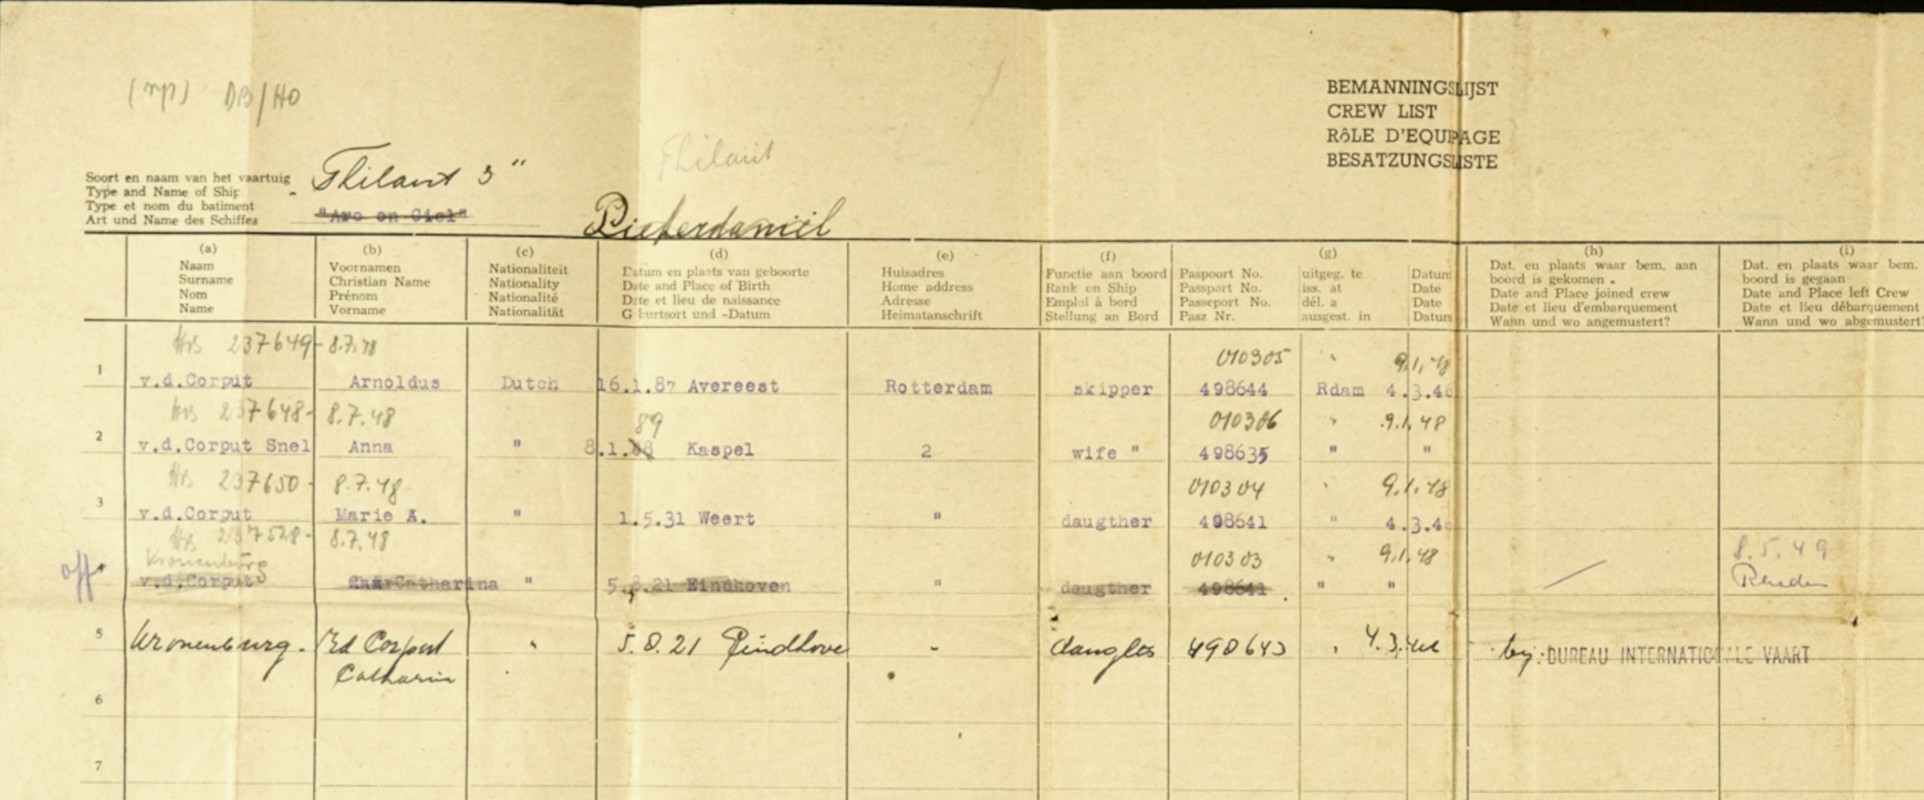 (np) DB/HO
BEMANNINGSLIJST
CREW LIST
RôLE D'EQUIPAGE
BESATZUNGSLISTE
Philant
Soort en naam van het vaartuig
Type and Name of Ship
Type et nom du batiment
Art und Name des Schiffes
Philant 3"
"Arc en Ciel"
Pieterdaniël
(a) (b) (c) (d) (e) (f) (g) (h) (i)
Naam Voornamen Nationaliteit Datum en plaats van geboorte Huisadres Functie aan boord Paspoort No. uitgeg. te Datum Dat. en plaats waar bem. aan boord is gekomen. Dat. en plaats waar bem. boord is gegaan
Surname Christian Name Nationality Date and Place of Birth Home address Rank on Ship Passport No. iss. at Date Date and Place joined crew Date and Place left Crew
Nom Prénom Nationalité Date et lieu de naissance Adresse Emploi à bord Passeport No. dél. a Date Date et lieu d'embarquement Date et lieu débarquement
Name Vorname Nationalität Geburtsort und -Datum Heimatanschrift Stellung an Bord Pasz Nr. ausgest. in Datum Wann und wo angemustert? Wann und wo abgemustert?
237649- 8.7.48 010305 " 9.1.48
1 v.d.Corput Arnoldus Dutch 16.1.87 Avereest Rotterdam skipper 498644 Rdam 4.3.46
237648- 8.7.48 89 010306 " 9.1.48
2 v.d.Corput Snel Anna " 8.1.88 Kaspel 2 wife " 498635 " "
237650- 8.7.48 010304 " 9.1.48
3 v.d.Corput Marie A. " 1.5.31 Weert " daugther 498641 " 4.3.46
237528- 8.7.48 010303 " 9.1.48 8.5.49
Kronenburg
off v.d.Corput Catharina " 5.8.21 Eindhoven " daugther 498641 " "
5 Kronenburg. vd Corput " 5.8.21 Eindhove - 498643 " 4.3.46 by: BUREAU INTERNATIONALE VAART
Catharin
6
7